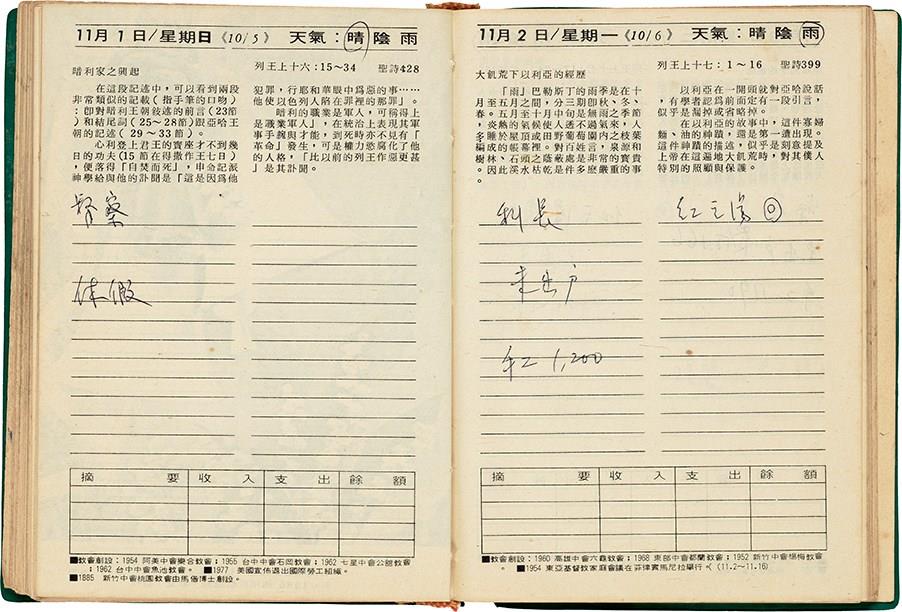 11月1日/星期日《10/5》 天氣：晴 陰 雨
列王上十六：15～34 聖詩428
暗利家之興起
在這段記述中，可以看到兩段
非常類似的記載（指手筆的口吻）
：即對暗利王朝後述的前言（23節
）和結尾詞（25～28節）跟亞哈王
朝的記述（29～33節）。
心利登上君王的寶座才不到幾
日的功夫（15節在得撒作王七日）
，便落得「自焚而死」，申命記派
神學給與他的訃聞是「這是因爲他
犯罪，行耶和華眼中爲惡的事……
他使以色列人陷在罪裡的那罪」。
暗利的職業是軍人，可稱得上
是職業軍人，在統治上表現其軍
事手腕與才能，到死時亦不見有「
革命」發生，可是權力慾腐化了他
的人格，「比以前的列王作惡更甚
」是其訃聞。
督察
休假
摘要 收入 支出 餘額
■教會創設：1954 阿美中會樂合教會；1955 台中中會石岡教會；1962 七星中會公館教會
；1962 台中中會魚池教會。 ■1977 美國宣佈退出國際勞工組織。
■1885 新竹中會桃園教會由馬偕博士創設。
11月2日/星期一《10/6》 天氣：晴 陰 雨
列王上十七：1～16 聖詩399
大飢荒下以利亞的經歷
「雨」巴勒斯丁的雨季是在十
月至五月之間，分三期即秋、冬、
春。五月至十月中旬是無雨之季節
，炎熱的氣候使人透不過氣來，人
多睡於屋頂或田野葡萄園內之枝葉
編成的帳幕裡。對百姓言，泉源和
樹林、石頭之蔭處是非常的寶貴
。因此溪水枯乾是件多麼嚴重的事
。
以利亞一開頭就對亞哈說話
，有學者認爲前面定有一段引言，
似乎是漏掉或省略掉。
在以利亞的故事中，這件寡婦
、麵、油的神蹟，還是第一遭出現。
這件神蹟的描述，似乎是刻意提及
上帝在這遍地大飢荒時，對其僕人
特別的照顧與保護。
科長
未出戶
紅1,200
摘要 收入 支出 餘額
■教會創設：1960 高雄中會六龜教會；1968 東部中會都蘭教會；1952 新竹中會楊梅教會
。 ■1954 東亞基督教家庭會議在菲律賓馬尼拉舉行。（11.2～11.16）